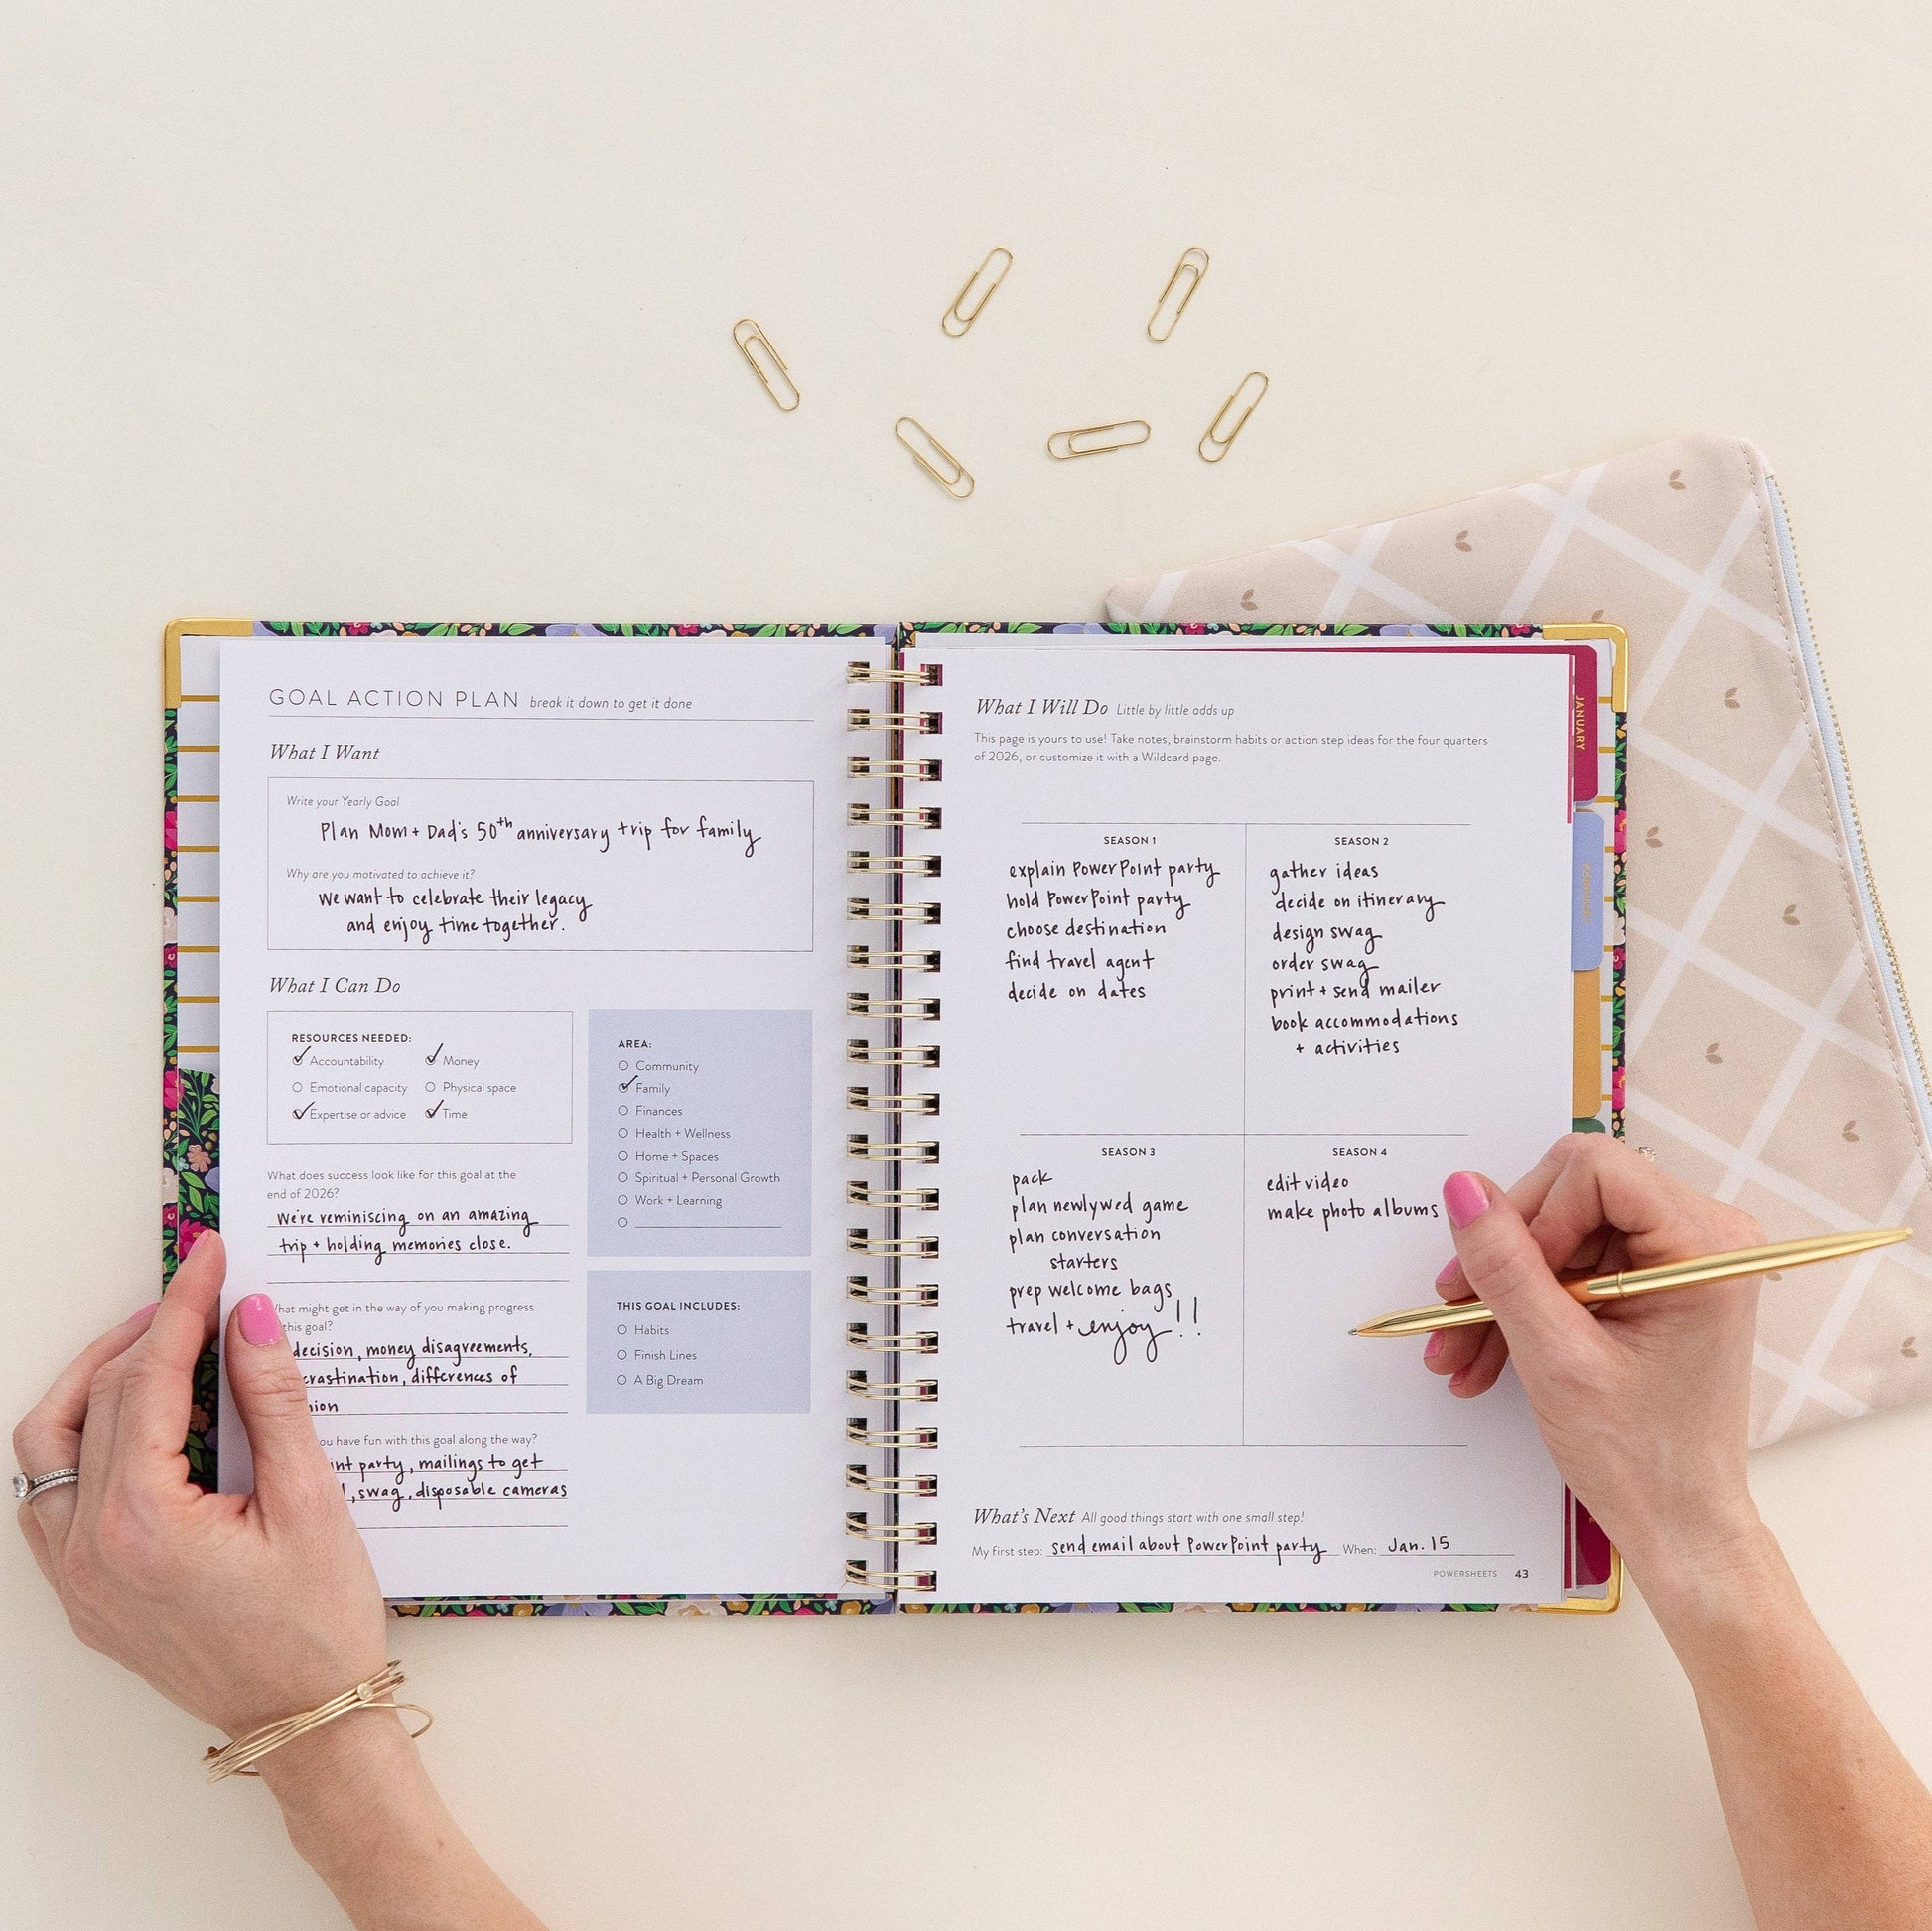 GOAL ACTION PLAN break it down to get it done
What I Want
Write your Yearly Goal
Plan Mom + Dad's 50th anniversary trip for family
Why are you motivated to achieve it?
we want to celebrate their legacy
and enjoy time together.
What I Can Do
RESOURCES NEEDED:
Accountability Money
Emotional capacity Physical space
Expertise or advice Time
AREA:
Community
Family
Finances
Health + Wellness
Home + Spaces
Spiritual + Personal Growth
Work + Learning
What does success look like for this goal at the
end of 2026?
We're reminiscing on an amazing
trip + holding memories close.
might get in the way of you making progress
this goal?
money disagreements,
differences of
have fun with this goal along the way?
party, mailings to get
, swag, disposable cameras
THIS GOAL INCLUDES:
Habits
Finish Lines
A Big Dream
What I Will Do Little by little adds up
This page is yours to use! Take notes, brainstorm habits or action step ideas for the four quarters
of 2026, or customize it with a Wildcard page.
SEASON 1
explain PowerPoint party
hold PowerPoint party
choose destination
find travel agent
decide on dates
SEASON 2
gather ideas
decide on itinerary
design swag
order swag
print + send mailer
book accommodations
+ activities
SEASON 3
pack
plan newlywed game
plan conversation
starters
prep welcome bags
travel + enjoy!!
SEASON 4
edit video
make photo albums
What's Next All good things start with one small step!
My first step: send email about PowerPoint party When: Jan. 15
POWERSHEETS 43
JANUARY